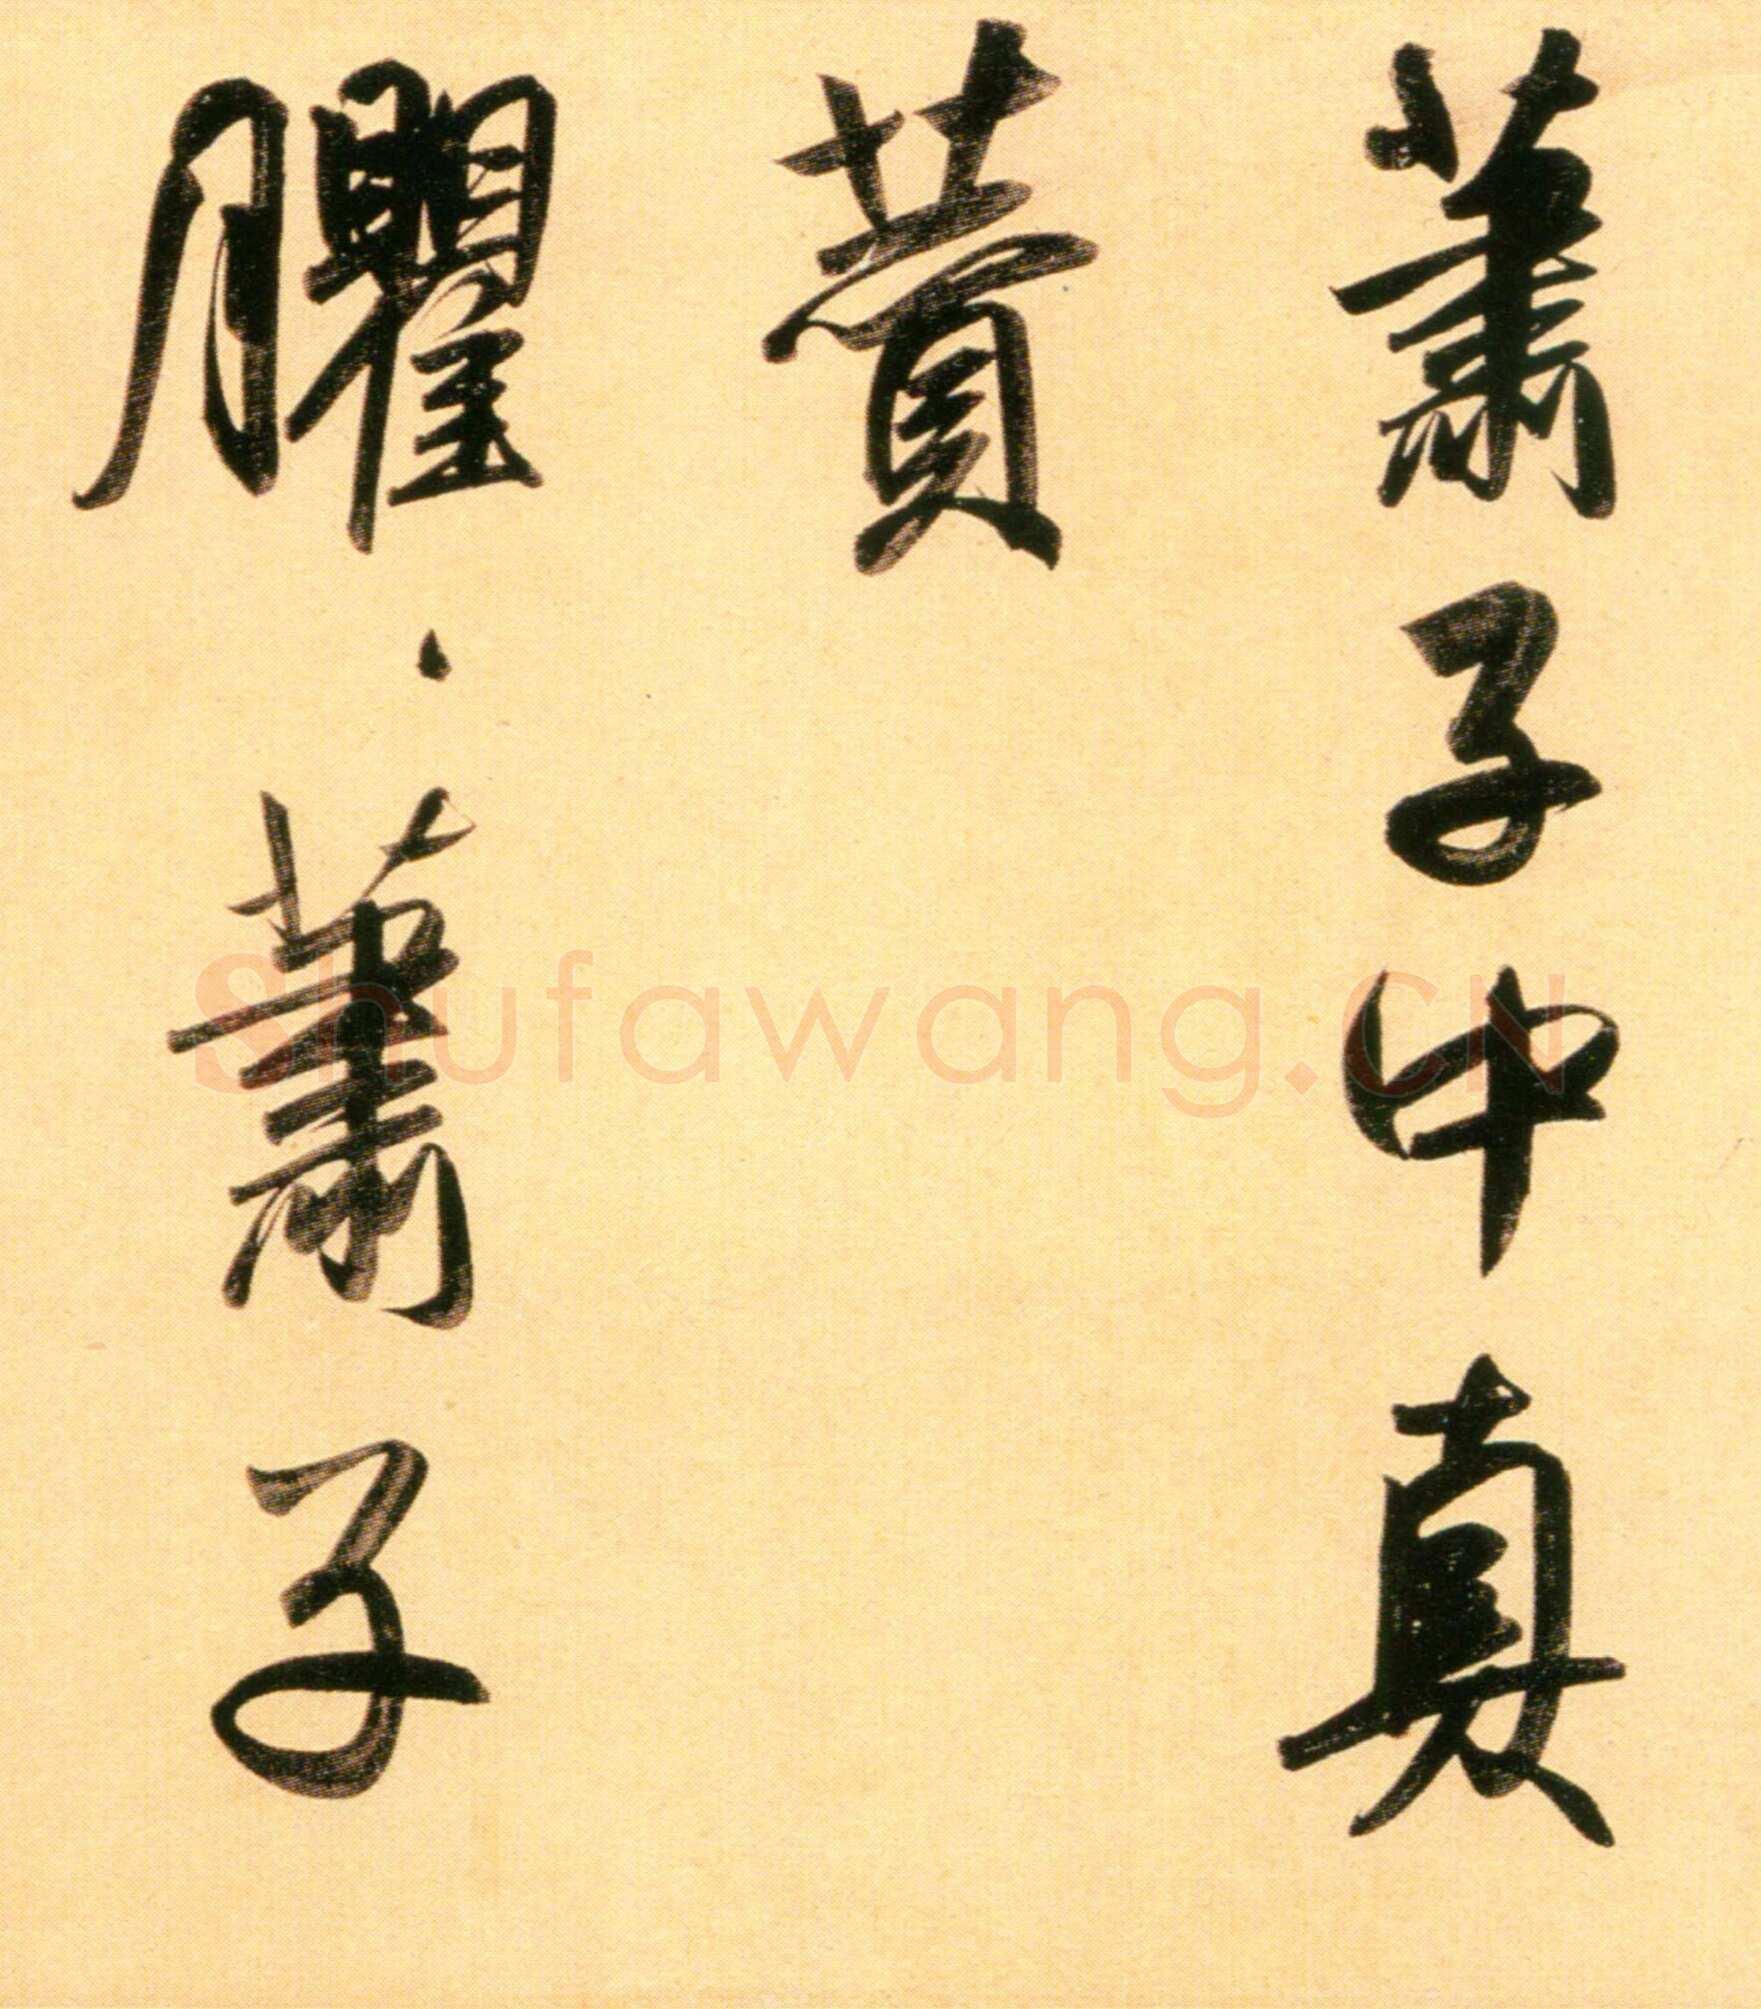 蕭子中真
賛
臞々蕭子
Shufawang.CN